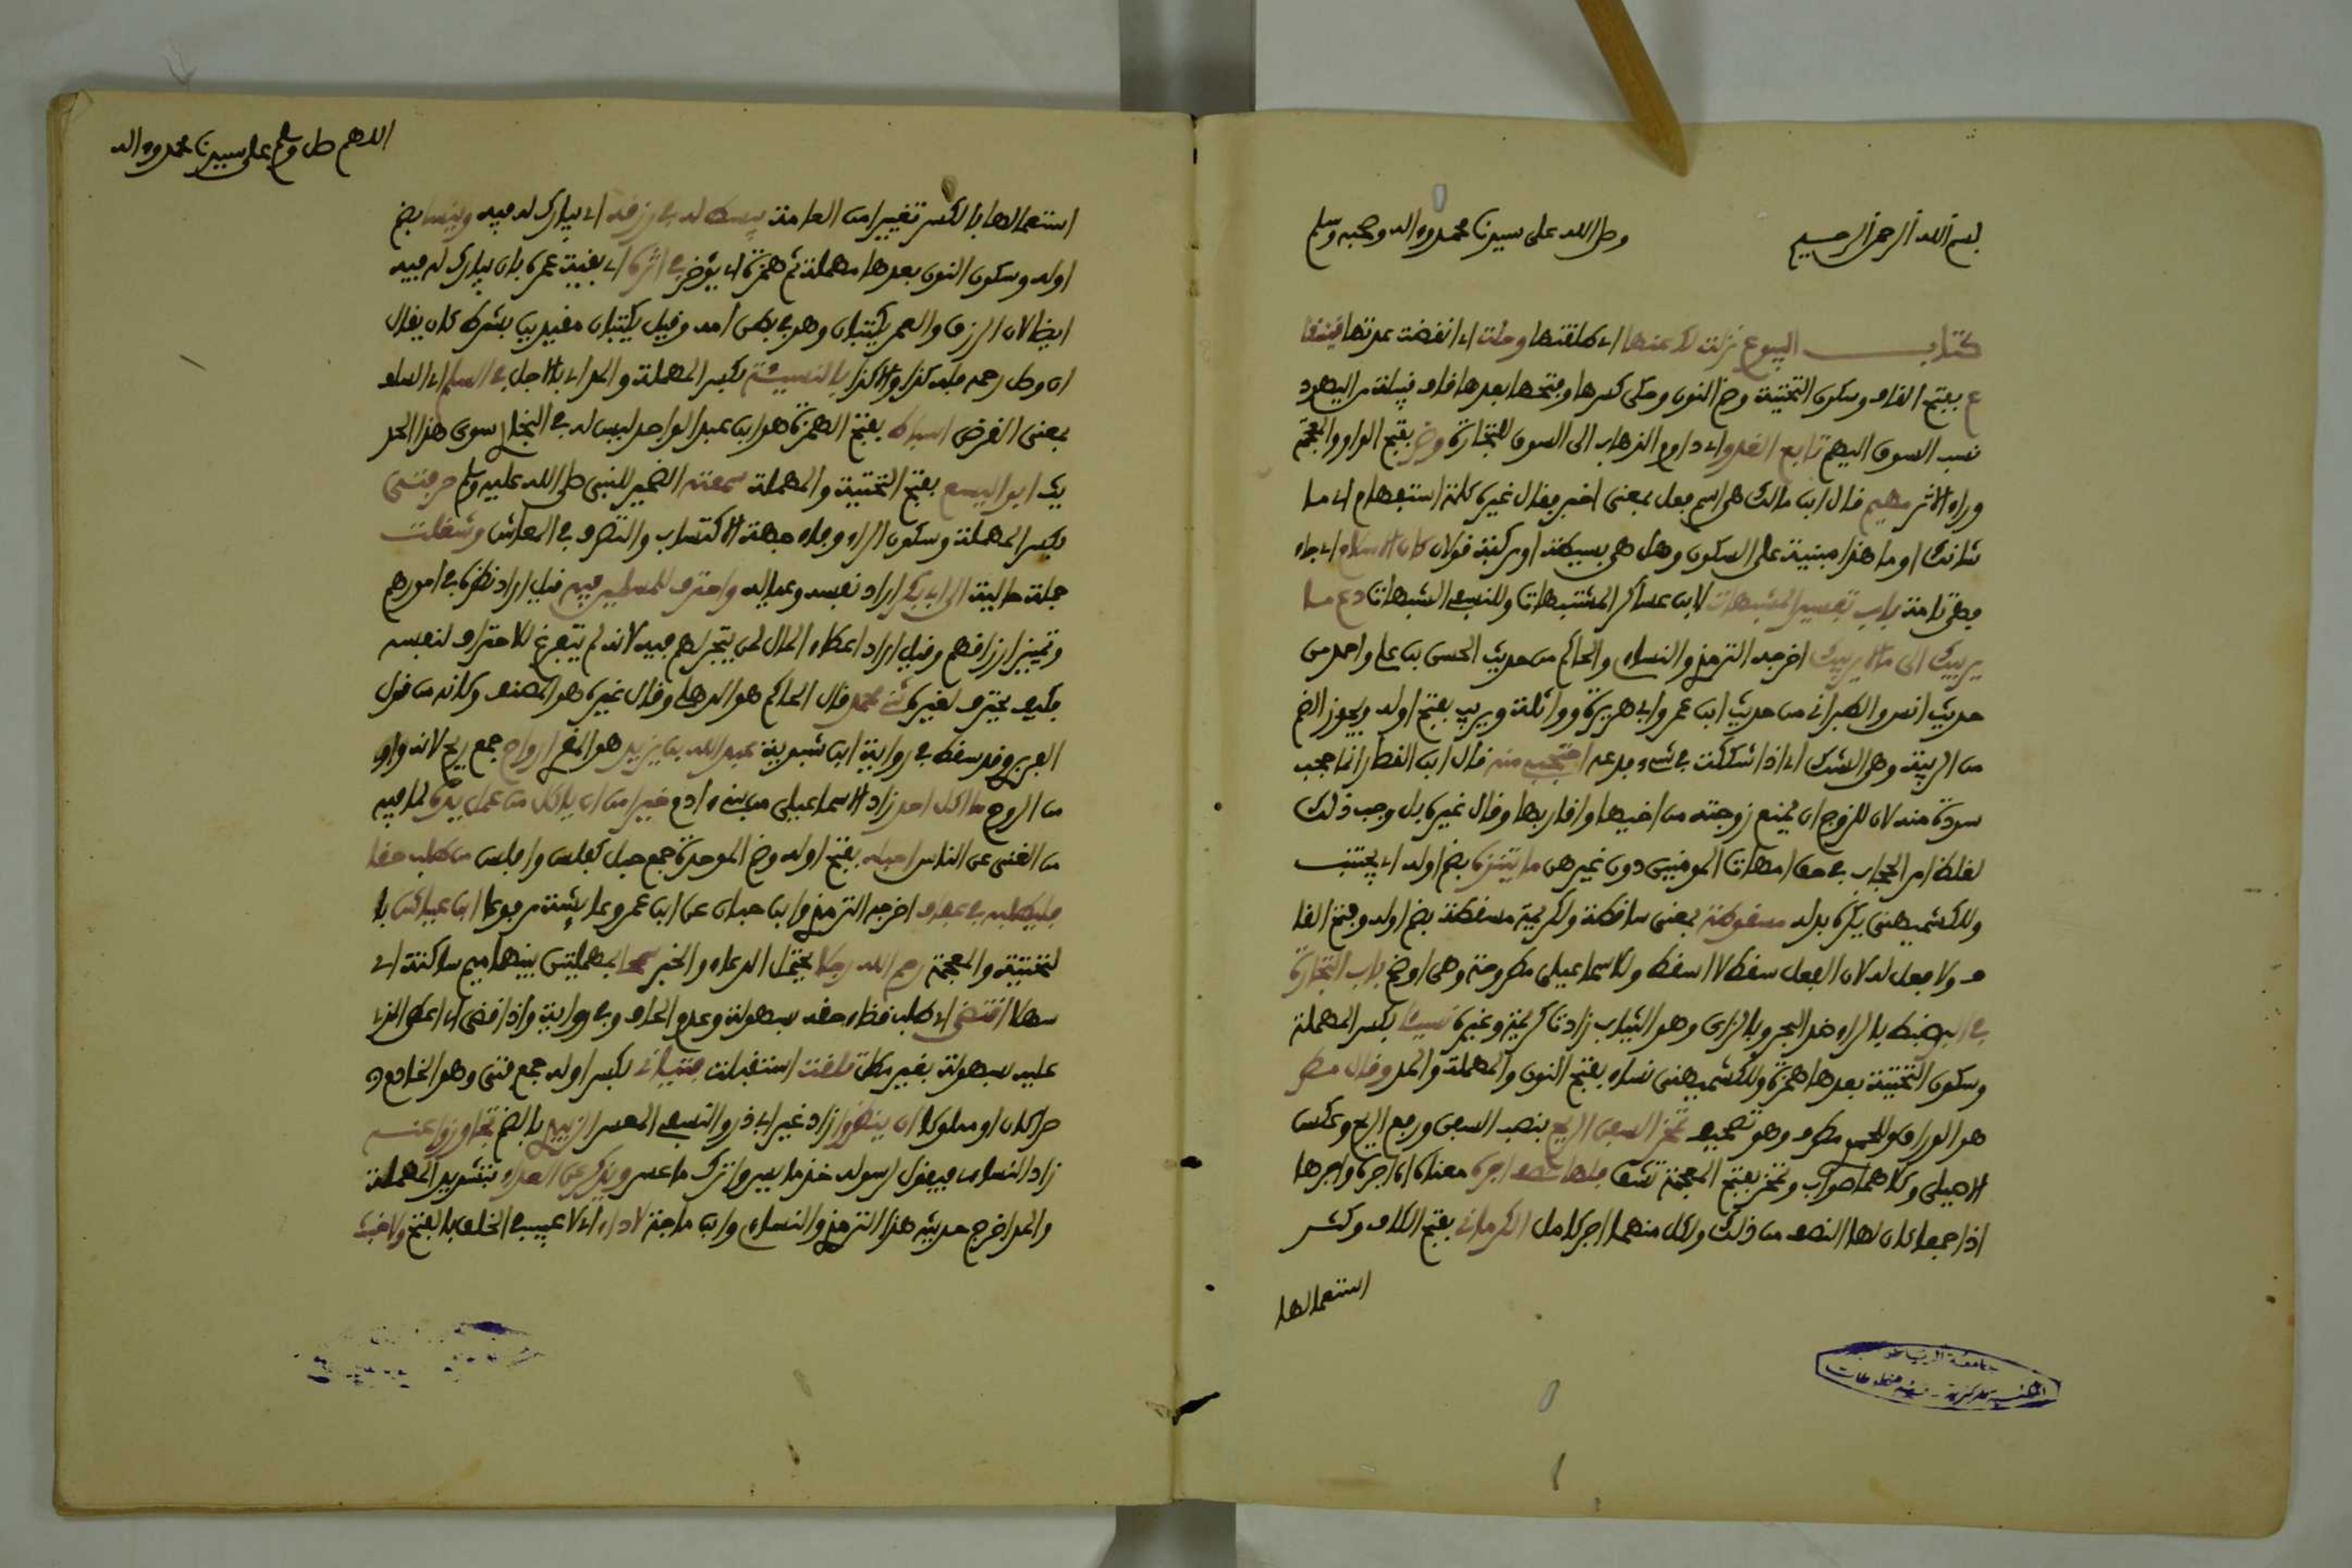 بسم الله الرحمن الرحيم وصلى الله على سيدنا محمد وءاله وصحبه وسلم
كتاب البيوع نزلت لك عنها اي طلقتها وحلت اي انقضت عدتها قينقا
ع بفتح القاف وسكون التحتية وضم النون وحكي كسرها وفتحها بعدها قاف قبيلة من اليهود
نسب السوق اليهم تابع الغدو اي داوم الذهاب الى السوق للتجارة وضر بفتح الواو والمعجمة
وراء الاثر مهيم قال ابن مالك هي اسم فعل بمعنى اخبر وقال غيره كلمة استفهام اي ما
شانك او ما هذا مبنية على السكون وهل هي بسيطة او مركبة قولان كان الاسلام اي جاء
فهي تامة باب تفسير المشبهات لابن عساكر المشتبهات وللنسفي الشبهات دع ما
يريبك الى ما لا يريبك اخرجه الترمذي والنساء والحاكم من حديث الحسن بن علي واحمد من
حديث انس والطبراني من حديث ابن عمر وابي هريرة وواثلة ويريب بفتح اوله ويجوز الضم
من الريبة وهي الشك اي اذا شككت في شيء فدعه احتجبي منه قال ابن القطان انما حجب
سودة منه لان للزوج ان يمنع زوجته من اخيها واقاربها وقال غيره بل وجب ذلك
لغلظ امر الحجاب في حق امهات المومنين دون غيرهن ما يتنزه بضم اوله اي يجتنب
وللكشميهني يكره بدله مسقوطة بمعنى ساقطة ولكريمة مسقطة بضم اوله وفتح القا
ف ولا فعل له لان الفعل سقط لا اسقط وللاسماعيلي مطروحة وهي اوضح باب التجارة
في البر ضبط بالراء ضد البحر وبالزاي وهو الثياب زاد كريمة وغيره نسيئا بكسر المهملة
وسكون التحتية بعدها همزة وللكشميهني نساء بفتح النون والمهملة والمد وقال مطر
هو الوراق وللحموي مطرف وهو تصحيف تمخر السفن الريح بنصب السفن ورفع الريح وعكس
الاصيلي وكلاهما صواب وتمخر بفتح المعجمة تشق فلها نصف اجره معناه ان اجره واجرها
اذا جمعا كان لها النصف من ذلك ولكل منهما اجر كامل الكرماني بفتح الكاف وكسر
استعمالها
جامعة الرياض
المكتبة المركزية - قسم المخطوطات
اللهم صل وسلم على سيدنا محمد وءاله
استعمالها بالكسر تغيير من العامة يبسط له في رزقه اي يبارك له فيه وينسا بضم
اوله وسكون النون بعدها مهملة ثم همزة اي يؤخر في اثره اي بقية عمره بان يبارك له فيه
ايضا لان الرزق والعمر يكتبان وهو في بطن امه وقيل يكتبان مقيدين بشرط كان يقال
ان وصل رحمه فله كذا والا كذا بالنسيئة بكسر المهملة والمد اي بالاجل في السلم اي السلف
بمعنى القرض اسباط بفتح الهمزة هو ابن عبد الواحد ليس له في البخاري سوى هذا الحد
يث ابو اليسع بفتح التحتية والمهملة سمعته الضمير للنبي صلى الله عليه وسلم حرفتي
بكسر المهملة وسكون الراء وفاء جهة الاكتساب والتصرف في المعاش وشغلت
جملة حالية ال ابي بكر اراد نفسه وعياله واحترف للمسلمين فيه قيل اراد نظره في امورهم
وتمييز ارزاقهم وقيل اراد اعطاء المال لمن يتجر لهم فيه لانه لم يتفرغ للاحتراف لنفسه
فكيف يحترف لغيره ثني محمد قال الحاكم هو الذهلي وقال غيره هو المصنف وكانه من قول
الفربري وقد سقط في رواية ابن شبوية عبد الله بن يزيد هو المقري ارواح جمع ريح لانه واوي
من الروح ما اكل احد زاد الاسماعيلي من بني ءادم خيرا من ان ياكل من عمل يده لما فيه
من الغنى عن الناس احبله بفتح اوله وضم الموحدة جمع حبل كفلس وافلس من طلب حقا
فليطلبه في عفاف اخرجه الترمذي وابن حبان عن ابن عمر وعايشة مرفوعا ابن عياش با
لتحتية والمعجمة رحم الله رجلا يحتمل الدعاء والخبر سمحا بمهملتين بينهما ميم ساكنة اي
سهلا اقتضى اي طلب قضاء حقه بسهولة وعدم الحاف وفي رواية واذا قضى اي اعطى الذي
عليه بسهولة بغير مطل تلقت استقبلت فتياني بكسر اوله جمع فتى وهو الخادم
حرا كان او مملوكا ان ينظروا زاد غير ابي ذر والنسفي المعسر الزبيع بالضم تجاوزوا عنه
زاد النساءي فيقول لرسوله خذ ما يسر واترك ما عسر ويذكر عن العداء بتشديد المهملة
والمد اخرج حديثه هذا الترمذي والنساءي وابن ماجة لا داء اي لا عيب في الخلق بالفتح ولا خبث